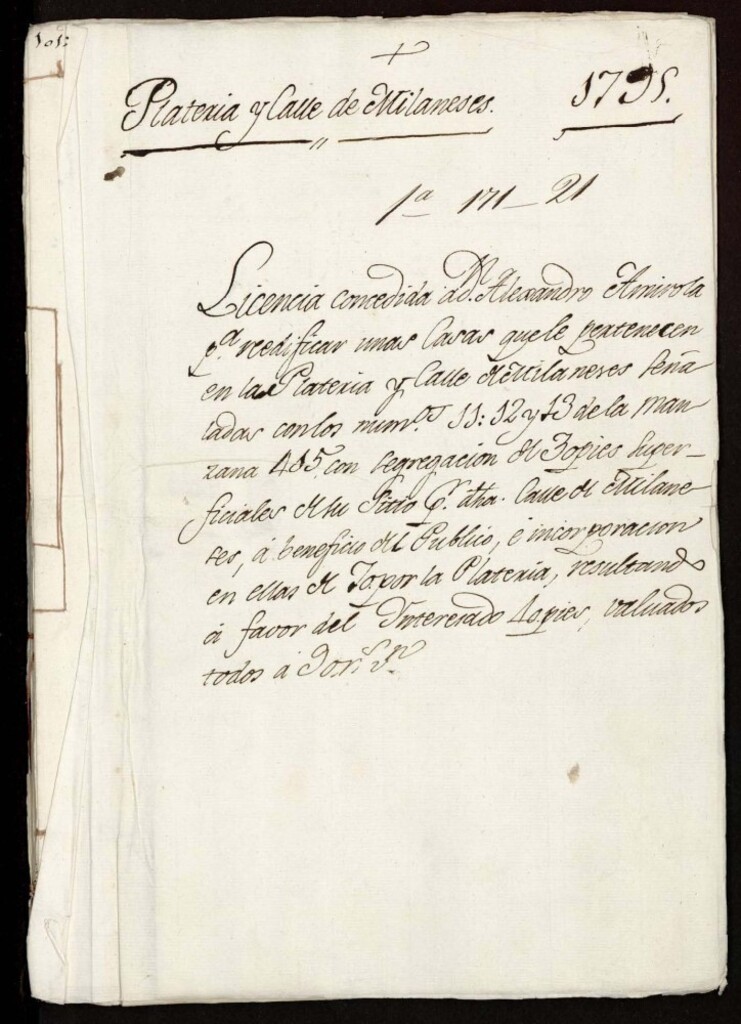 101:
+
Plateria y Calle de Milaneses. 1791.
1ª 171-21
Licencia concedida à Dⁿ. Alexandro Amirola
pª. reedificar unas Casas que le pertenecen
en la Plateria y Calle de Milaneses seña
ladas con los numˢ. 11: 12 y 13 de la Man
zana 415 con segregacion de 30 pies super-
ficiales de su Sitio pʳ. dha. Calle de Milane
ses, à beneficio del Publico, è incorporacion
en ellas de 70 por la Plateria, resultando
à favor del Interesado 40 pies, valuados
todos à